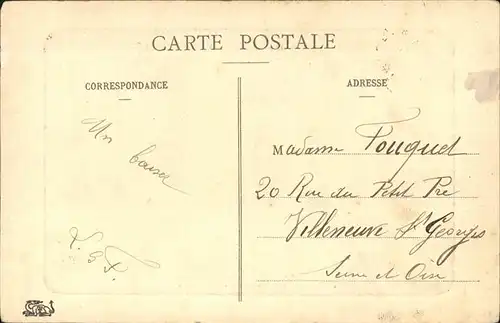 CARTE POSTALE
CORRESPONDANCE
ADRESSE
Un
baiser
Madame Fouquet
20 Rue du Petit Pre
Villeneuve St Georges
Seine et Oise